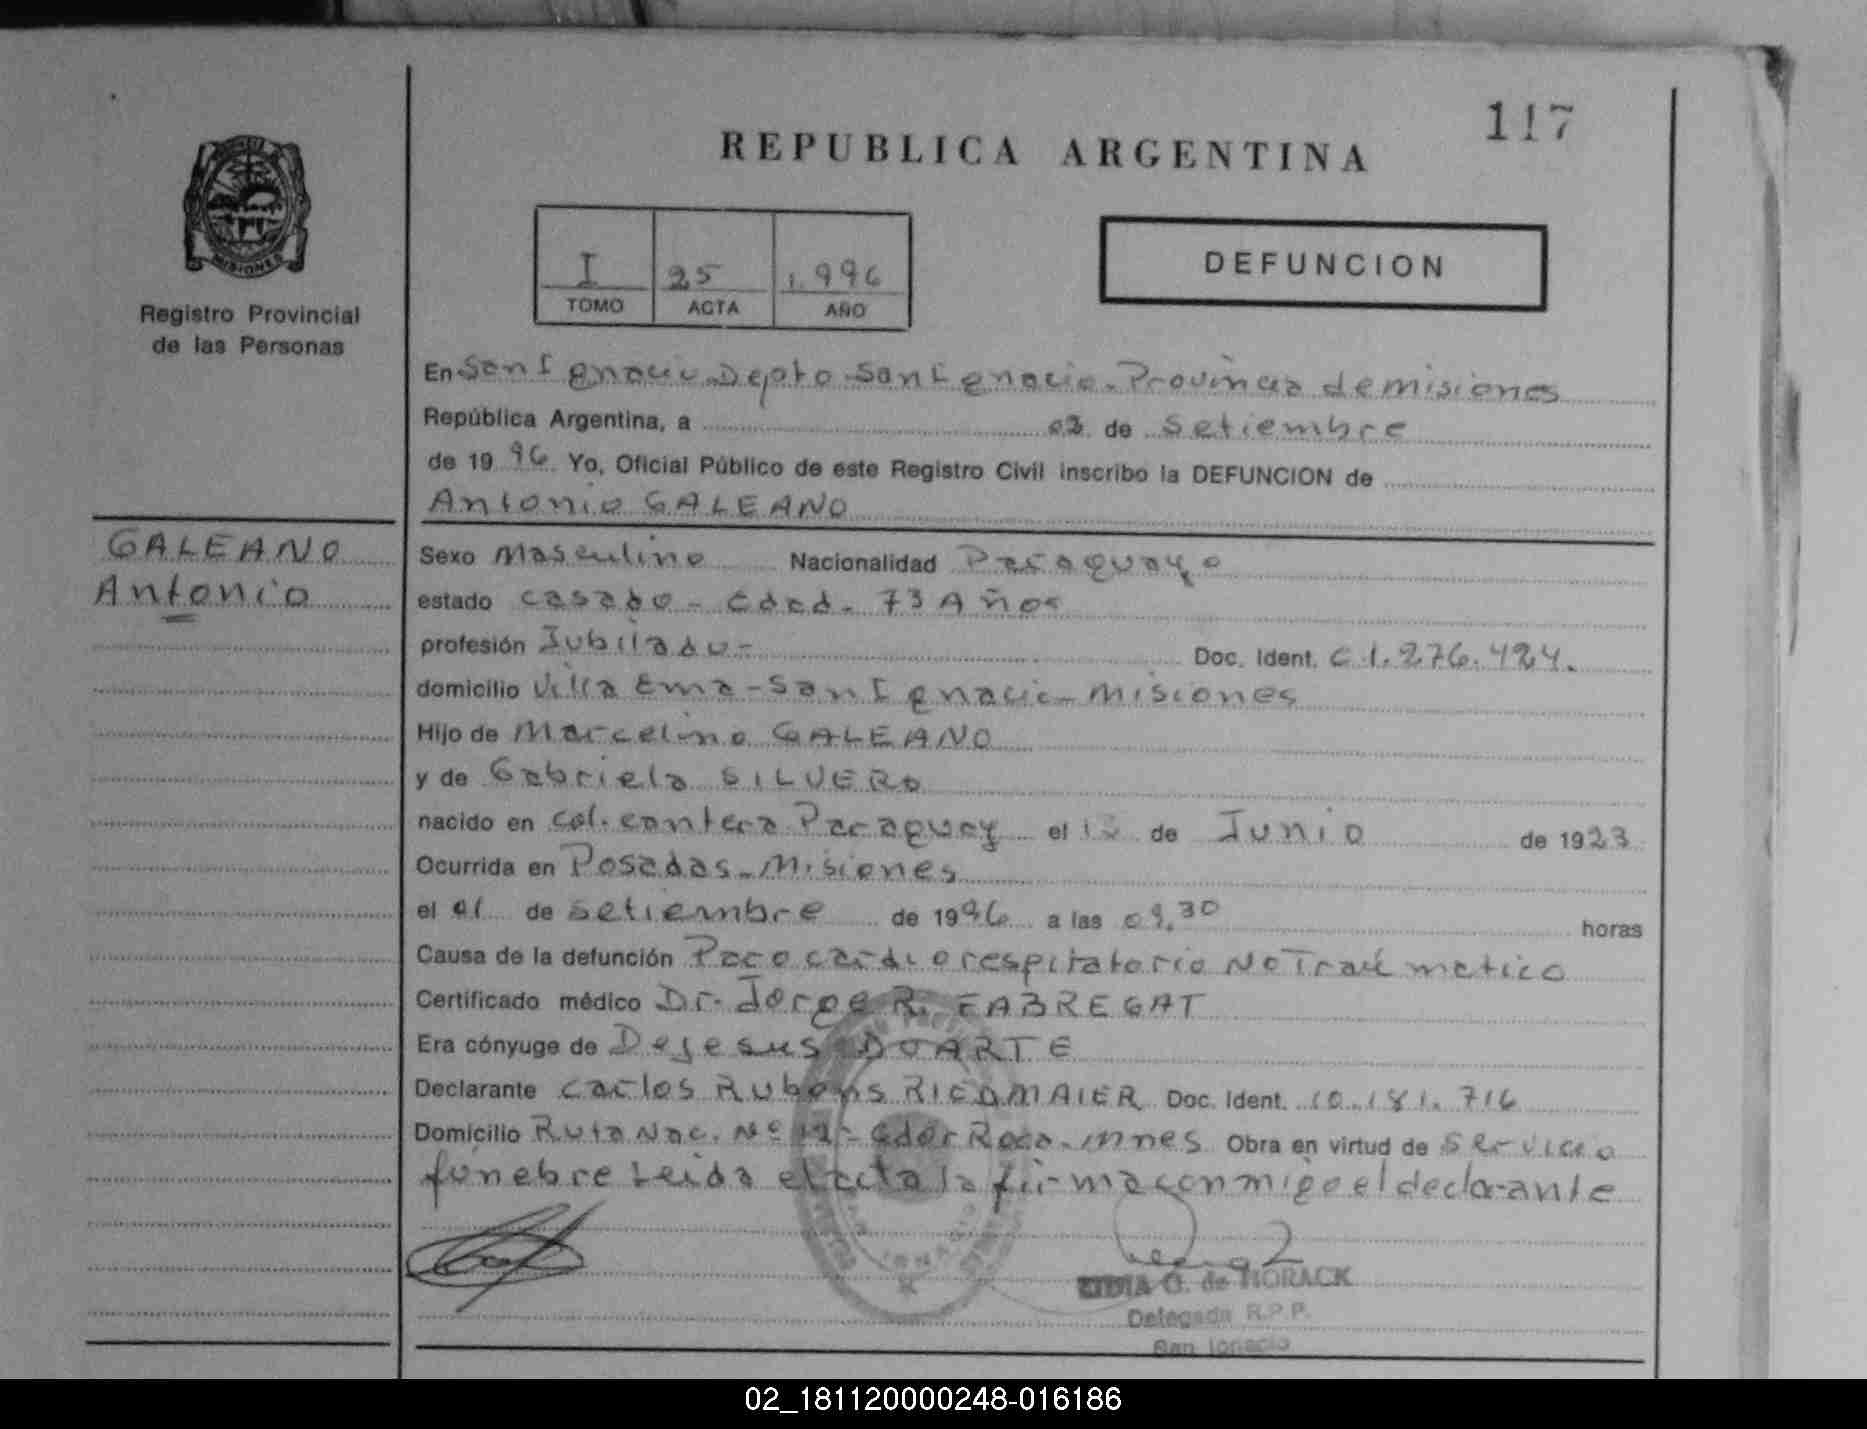 117
REPUBLICA ARGENTINA
MISIONES
Registro Provincial
de las Personas
I 25 1.996
TOMO ACTA AÑO
DEFUNCION
En San Ignacio Depto San Ignacio - Provincia de misiones
República Argentina, a 02 de Setiembre
de 1996 Yo, Oficial Público de este Registro Civil inscribo la DEFUNCION de
Antonio GALEANO
GALEANO
Antonio
Sexo Masculino Nacionalidad Paraguayo
estado casado - Edad - 73 Años
profesión Jubilado - Doc. Ident. C.I. 276.424.
domicilio Villa Ema - San Ignacio - Misiones
Hijo de Marcelino GALEANO
y de Gabriela SILVERO
nacido en Col. cantera Paraguay el 13 de Junio de 1923
Ocurrida en Posadas - Misiones
el 01 de Setiembre de 1996 a las 09,30 horas
Causa de la defunción Paro cardiorespiratorio No Traumatico
Certificado médico Dr. Jorge R. FABREGAT
Era cónyuge de Dejesus DUARTE
Declarante Carlos Rubens RIEDMAIER Doc. Ident. 10.181.716
Domicilio Ruta Nac. Nº 12 - Gdor Roca - Mnes Obra en virtud de Servicio
fúnebre Leida el acta la firma conmigo el declarante
LIDIA G. de HORACK
Delegada R.P.P.
San Ignacio
02_181120000248-016186